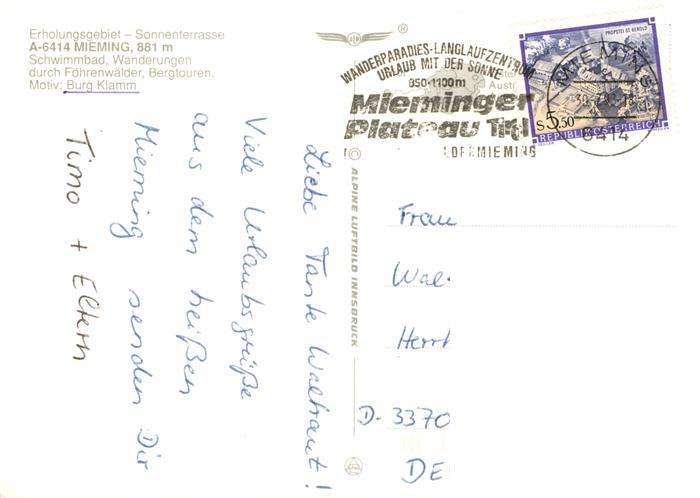 Erholungsgebiet – Sonnenterrasse
A-6414 MIEMING, 881 m
Schwimmbad, Wanderungen
durch Föhrenwälder, Bergtouren.
Motiv: Burg Klamm
Liebe Tante Waltraut!
Viele Urlaubsgrüße
aus dem heißen
Mieming senden Dir
Timo + Eltern
ALPINE LUFTBILD INNSBRUCK
WANDERPARADIES-LANGLAUFZENTRUM
URLAUB MIT DER SONNE
850-1100m
Mieminger
Plateau Tirol
OBERMIEMING
PROPSTEI ST. GEROLD
S 5.50
REPUBLIK ÖSTERREICH
6414
Frau
Wal
Herr
D-3370
DE